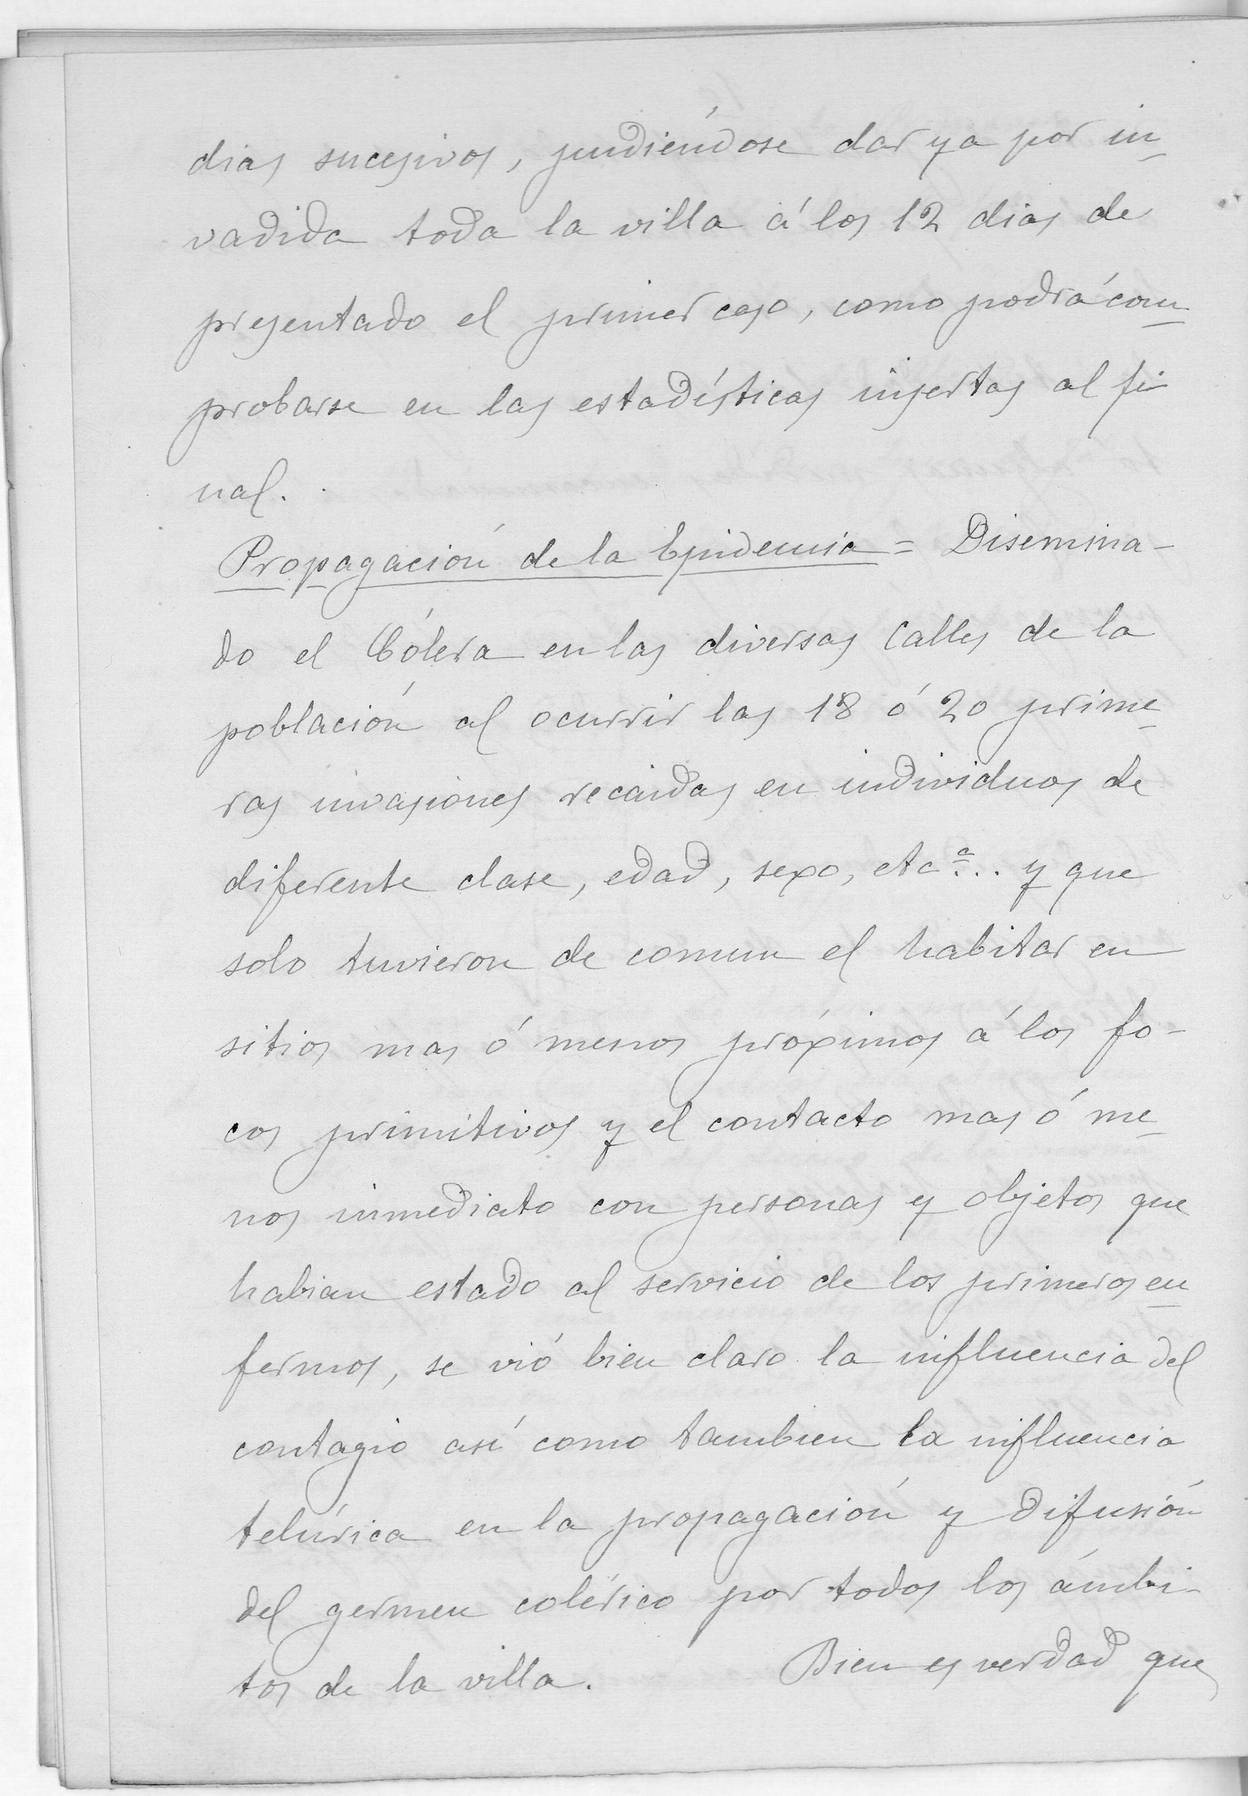 dias sucesivos, pudiéndose dar ya por in_
vadida toda la villa á los 12 dias de
presentado el primer caso, como podrá com_
probarse en las estadísticas insertas al fi-
nal.
Propagación de la Epidemia = Disemina-
do el Cólera en las diversas Calles de la
población al ocurrir las 18 ó 20 prime_
ras invasiones recaidas en individuos de
diferente clase, edad, sexo, etcª... y que
solo tuvieron de comun el habitar en
sitios mas ó menos próximos á los fo-
cos primitivos y el contacto mas ó me_
nos inmediato con personas y objetos que
habian estado al servicio de los primeros en_
fermos, se vió bien claro la influencia del
contagio así como tambien la influencia
telúrica en la propagación y difusión
del germen colérico por todos los ámbi-
tos de la villa. Bien es verdad que